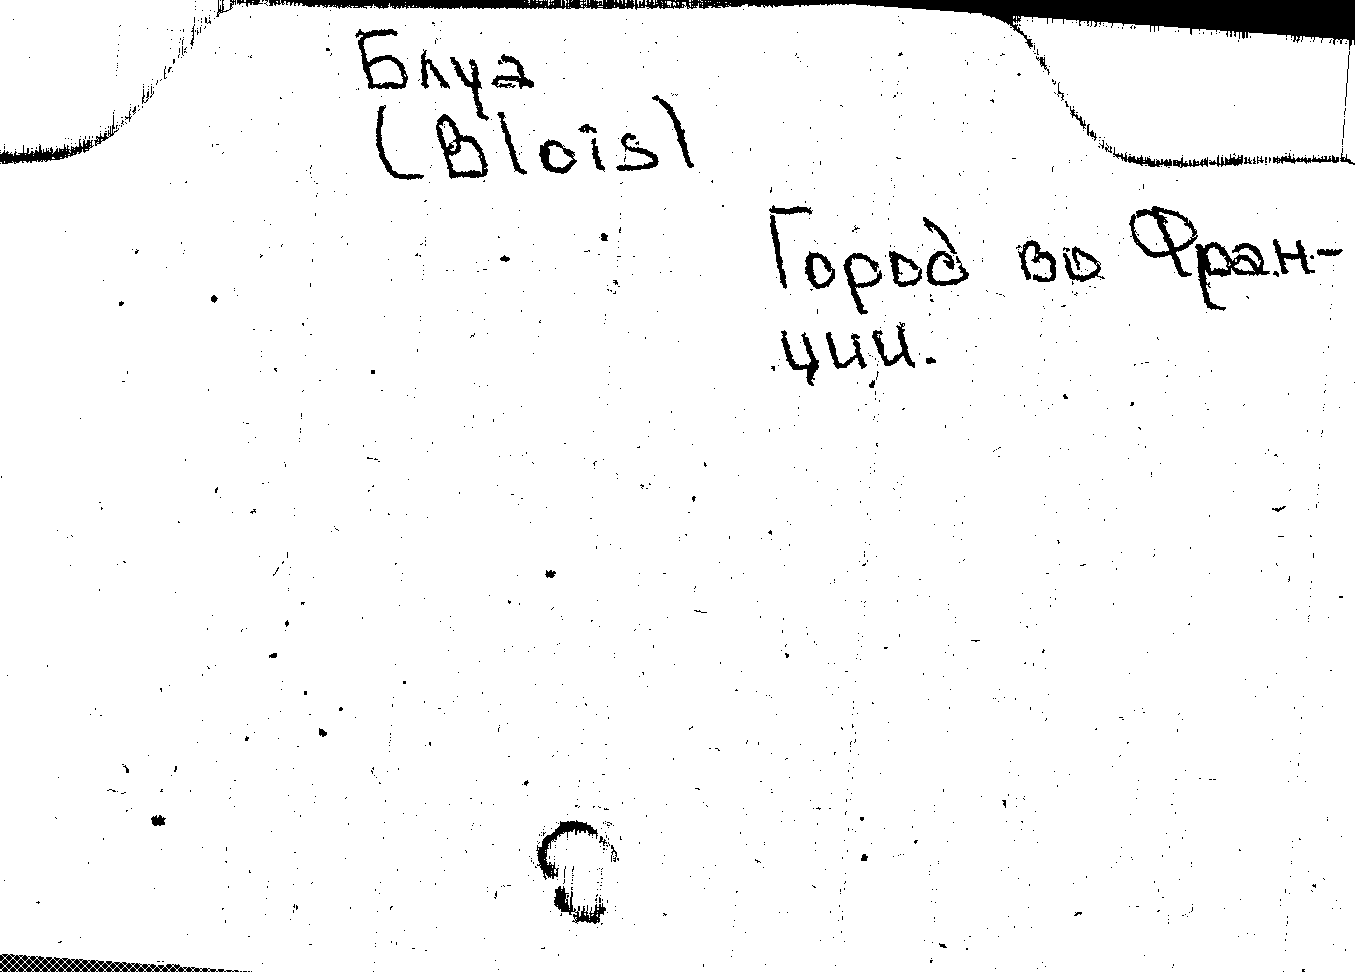 Блуа
(Blois)
Город во Фран-
ции.